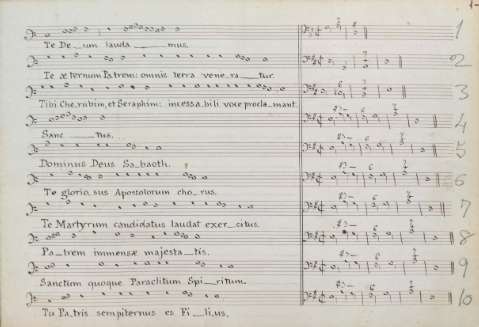 1
Te De_um lauda___mus.
2
Te æternum Patrem: omnis terra vene_ra_tur.
3
Tibi Cherubim, et Seraphim: incessabili voce proclamant.
4
Sanc___tus.
5
Dominus Deus Sa_baoth.
6
Te glorio_sus Apostolorum cho_rus.
7
Te Martyrum candidatus laudat exer_citus.
8
Pa_trem immensæ majesta_tis.
9
Sanctum quoque Paraclitum Spi_ritum.
10
Tu Pa_tris sempiternus es Fi_lius.